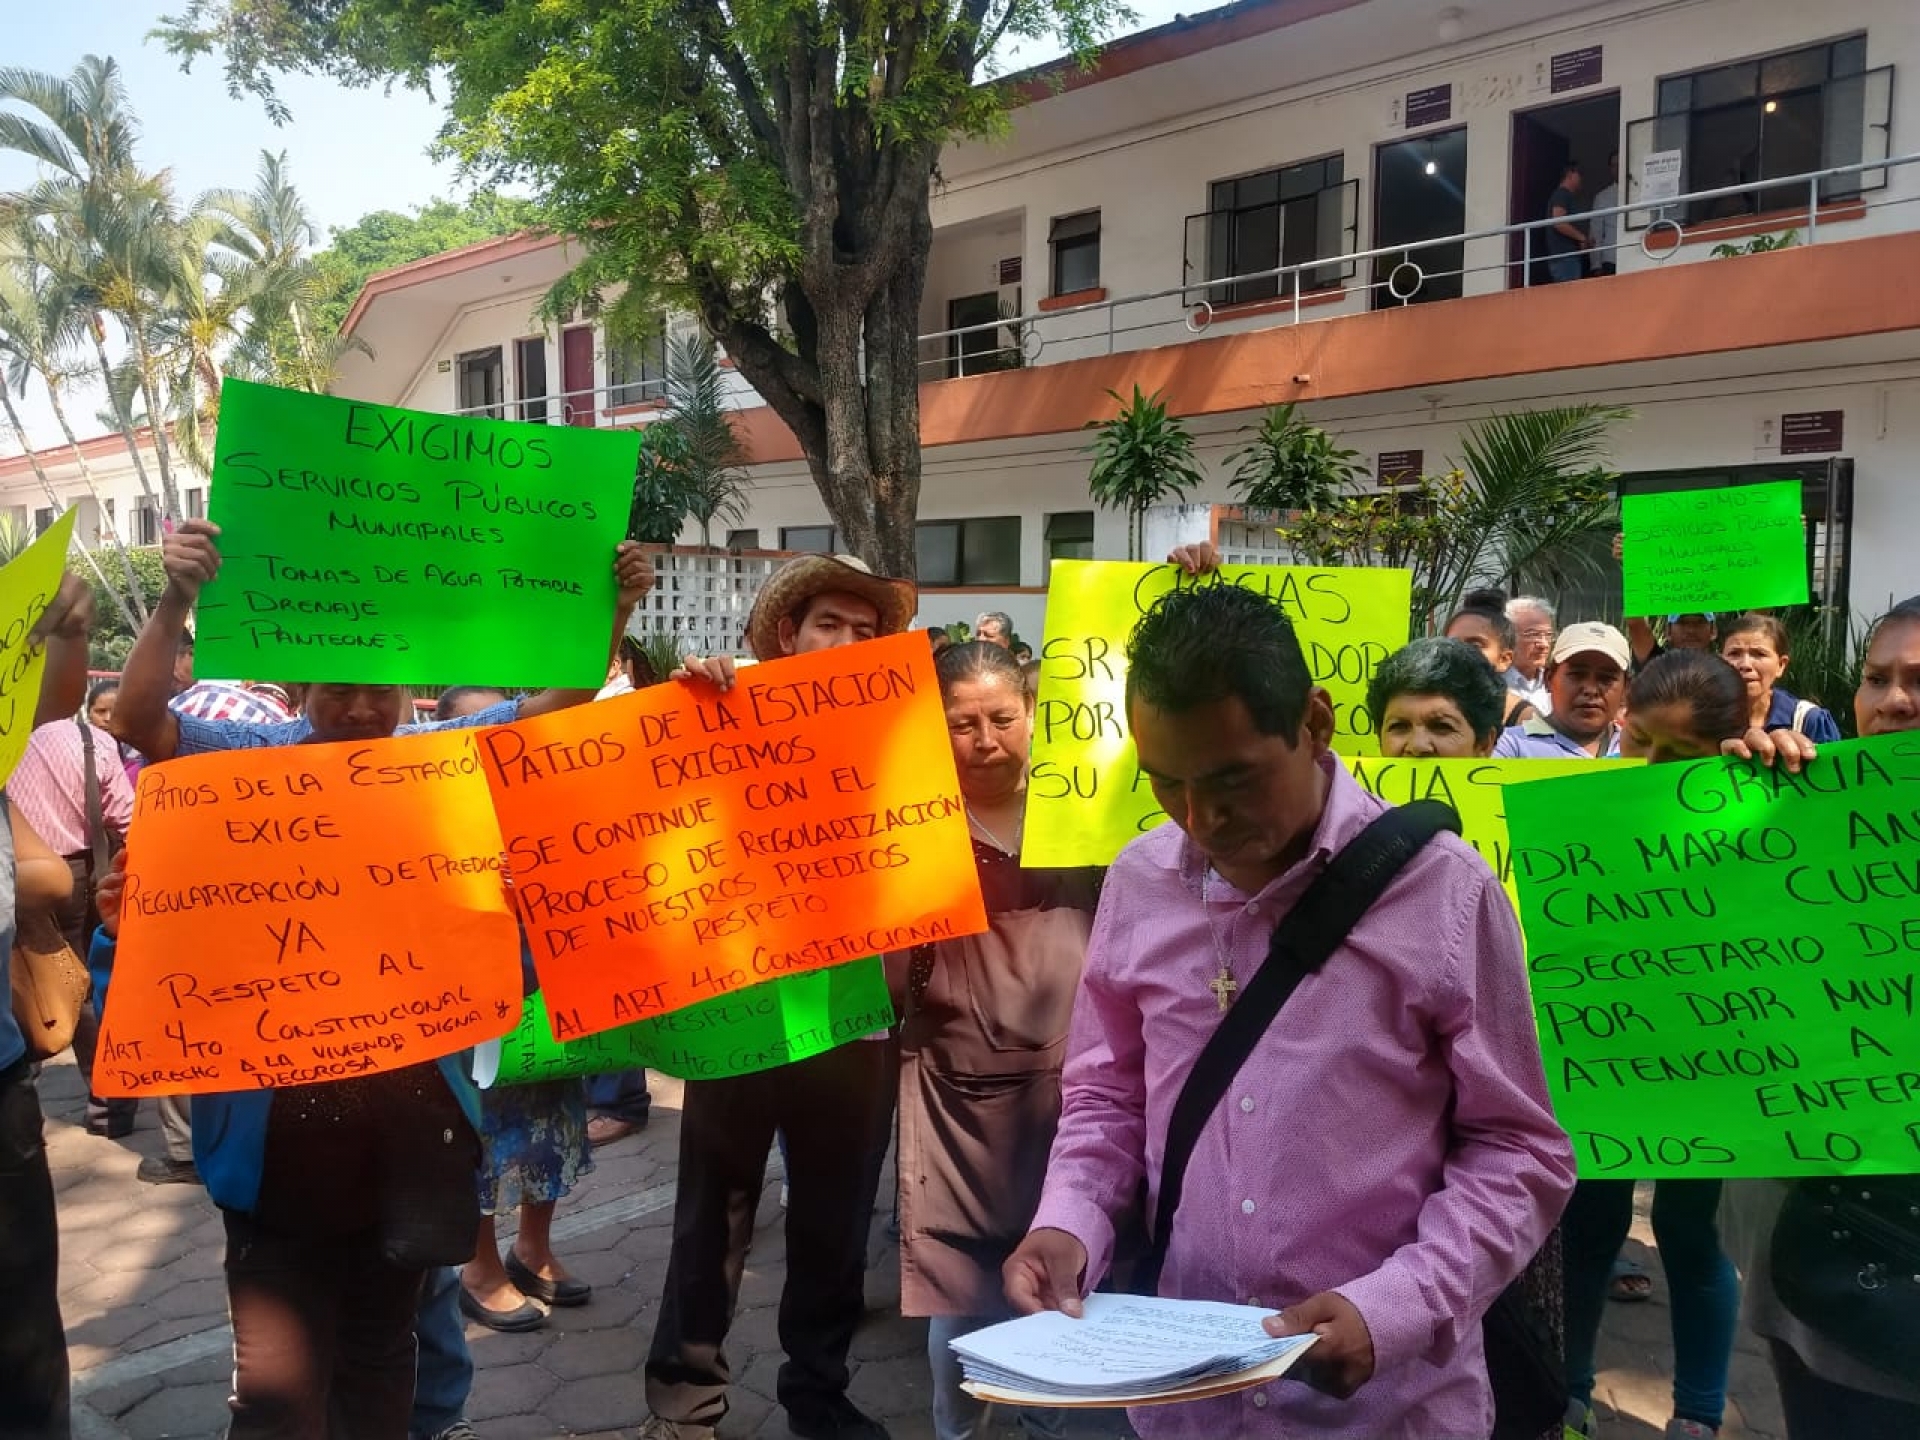 EXIGIMOS
SERVICIOS PÚBLICOS
MUNICIPALES
- TOMAS DE AGUA POTABLE
- DRENAJE
- PANTEONES
PATIOS DE LA ESTACIÓN
EXIGE
REGULARIZACIÓN DE PREDIOS
YA
RESPETO AL
ART. 4TO. CONSTITUCIONAL
"DERECHO A LA VIVIENDA DIGNA Y
DECOROSA"
PATIOS DE LA ESTACIÓN
EXIGIMOS
SE CONTINUE CON EL
PROCESO DE REGULARIZACIÓN
DE NUESTROS PREDIOS
RESPETO
AL ART. 4TO CONSTITUCIONAL
RESPETO
AL ART 4TO CONSTITUCIONA
GRACIAS
SR
POR
SU A
GRACIAS
DR. MARCO AN
CANTU CUEV
SECRETARIO DE
POR DAR MUY
ATENCIÓN A
ENFER
DIOS LO
EXIGIMOS
SERVICIOS PÚBLICOS
MUNICIPALES
- TOMAS DE AGUA
- DRENAJE
- PANTEONES